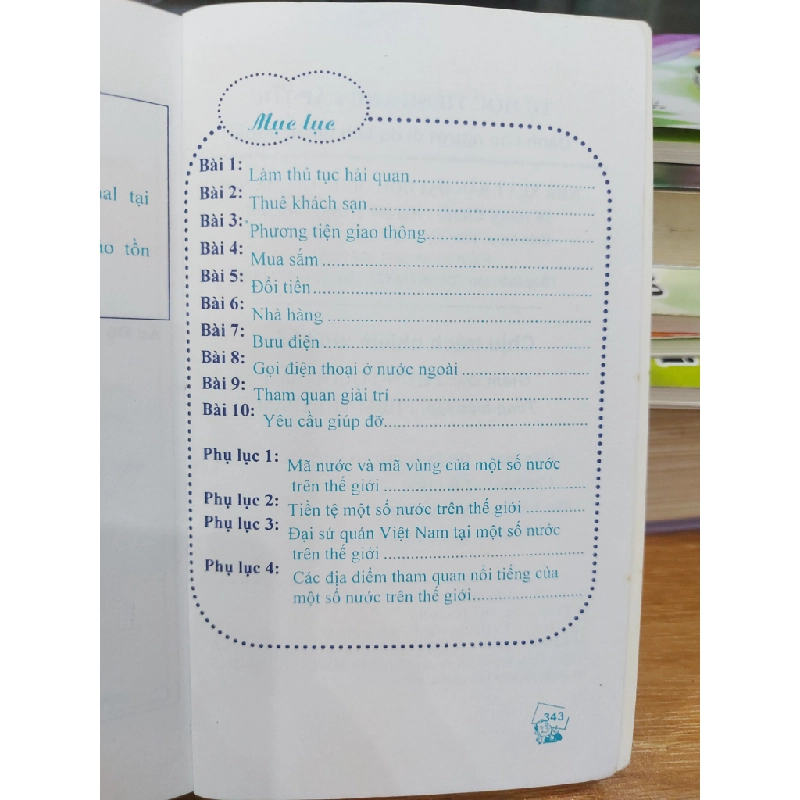 Mục lục
Bài 1: Làm thủ tục hải quan
Bài 2: Thuê khách sạn
Bài 3: Phương tiện giao thông
Bài 4: Mua sắm
Bài 5: Đổi tiền
Bài 6: Nhà hàng
Bài 7: Bưu điện
Bài 8: Gọi điện thoại ở nước ngoài
Bài 9: Tham quan giải trí
Bài 10: Yêu cầu giúp đỡ
Phụ lục 1: Mã nước và mã vùng của một số nước
trên thế giới
Phụ lục 2: Tiền tệ một số nước trên thế giới
Phụ lục 3: Đại sứ quán Việt Nam tại một số nước
trên thế giới
Phụ lục 4: Các địa điểm tham quan nổi tiếng của
một số nước trên thế giới
343
tại
tồn